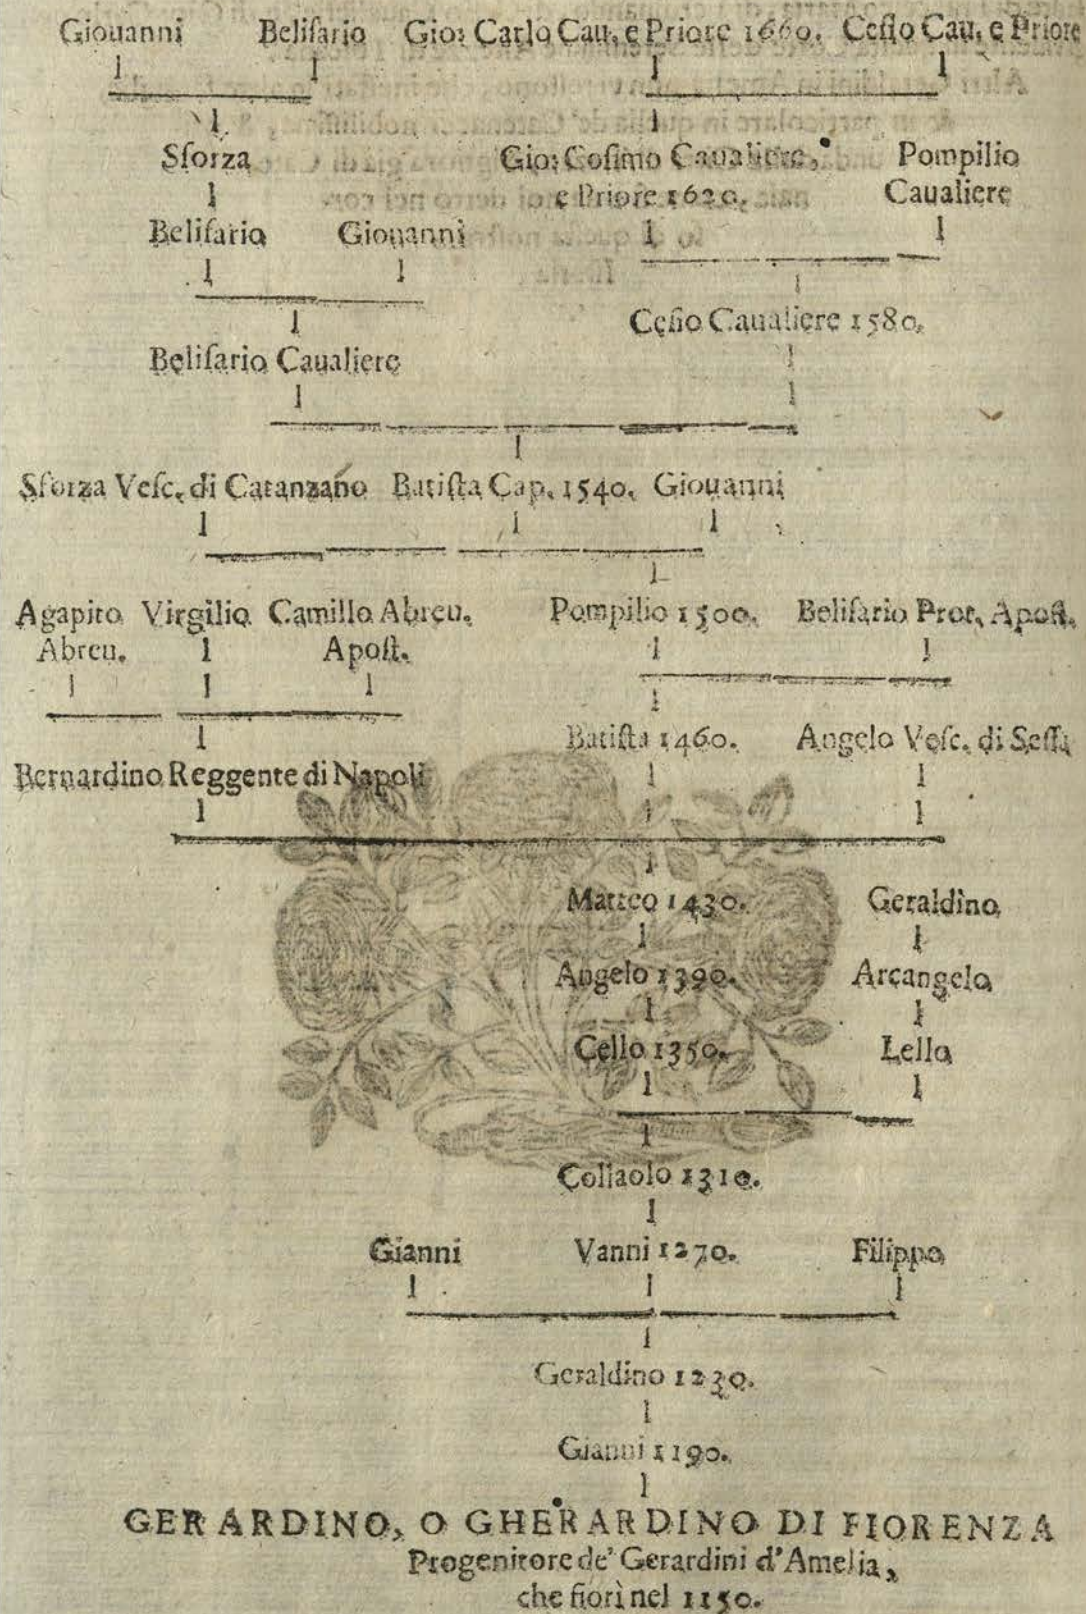 Giouanni Beliſario Gio: Carlo Cau. e Priore 1660. Ceſio Cau. e Priore
Sforza Gio: Coſimo Caualiere, Pompilio
e Priore 1620. Caualiere
Beliſario Giouanni
Ceſio Caualiere 1580.
Beliſario Caualiere
Sforza Veſc. di Catanzano Batiſta Cap. 1540. Giouanni
Agapito Virgilio Camillo Abreu. Pompilio 1500. Beliſario Prot. Apoſt.
Abreu. Apoſt.
Batiſta 1460. Angelo Veſc. di Seſſa
Bernardino Reggente di Napoli
Matteo 1430. Geraldino
Angelo 1390. Arcangelo
Cello 1350. Lello
Collaolo 1310.
Gianni Vanni 1270. Filippo
Geraldino 1230.
Gianni 1190.
GERARDINO, O GHERARDINO DI FIORENZA
Progenitore de' Gerardini d'Amelia,
che fiorì nel 1150.